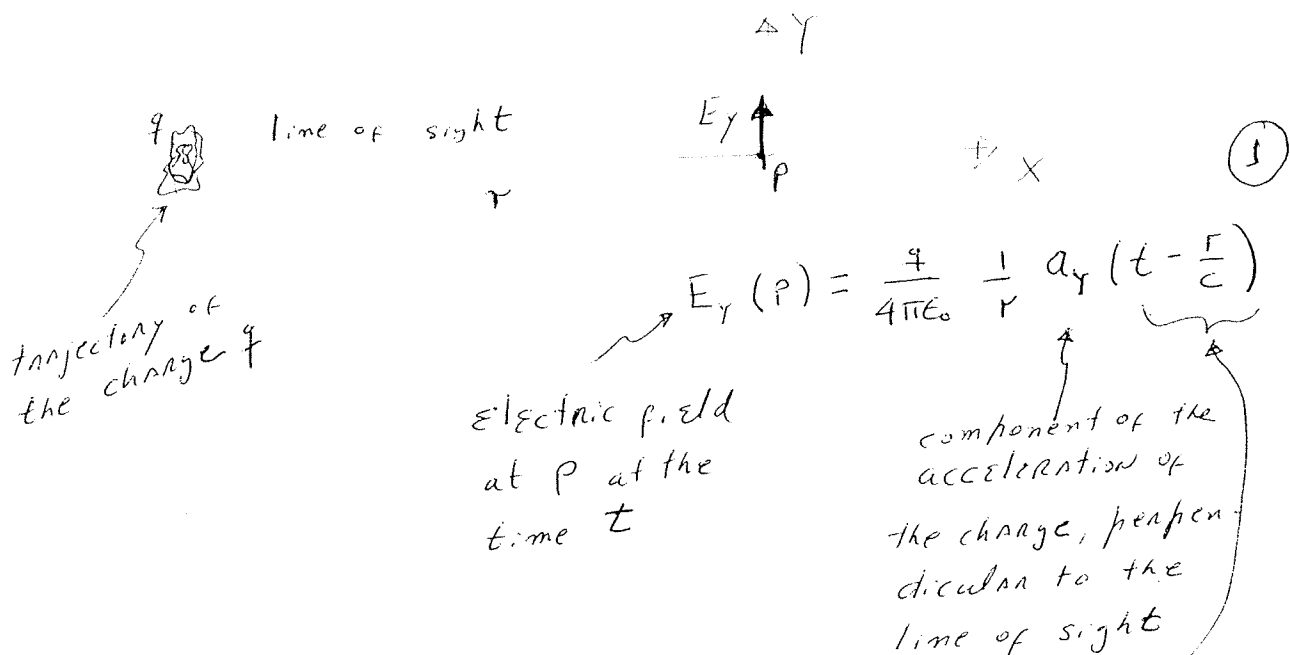 Y
q line of sight E_Y
P
X ①
r
E_Y (P) = q/4πε₀ 1/r a_Y (t - r/c)
trajectory of
the charge q
Electric field
at P at the
time t
component of the
acceleration of
the charge, perpen-
dicular to the
line of sight